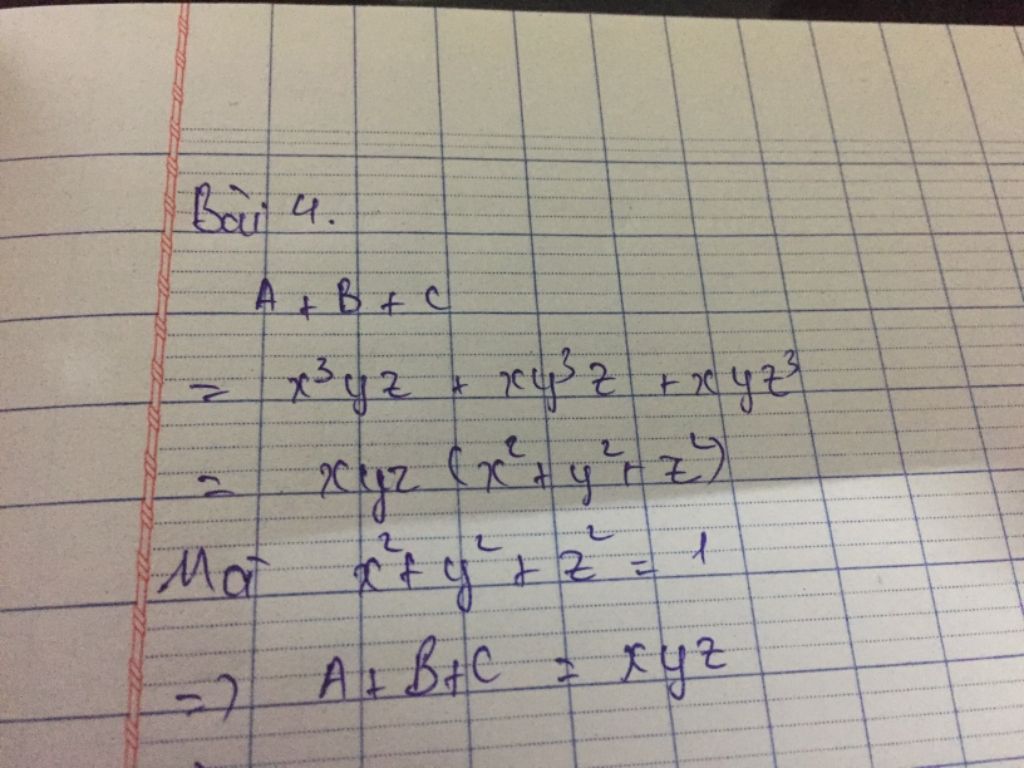 Bài 4.
A + B + C
= x³yz + xy³z + xyz³
= xyz (x² + y² + z²)
Mà x² + y² + z² = 1
=> A + B + C = xyz